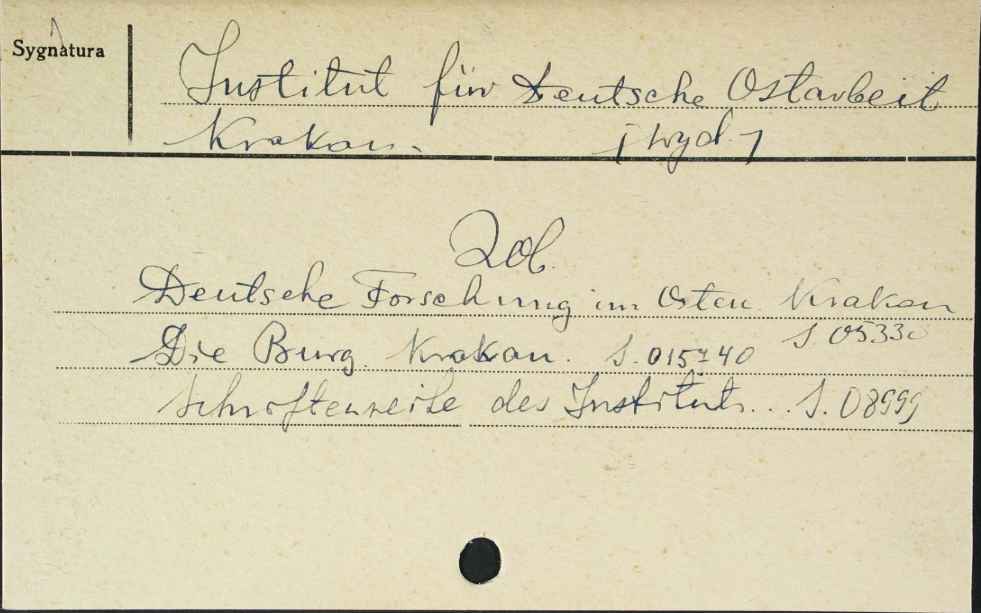 Sygnatura
Institut für Deutsche Ostarbeit
Krakau. [wyd.]
Zob.
Deutsche Forschung im Osten. Krakau
S. 05330
Die Burg. Krakau. S. 015740
Schriftenreihe des Instituts... S. 08999